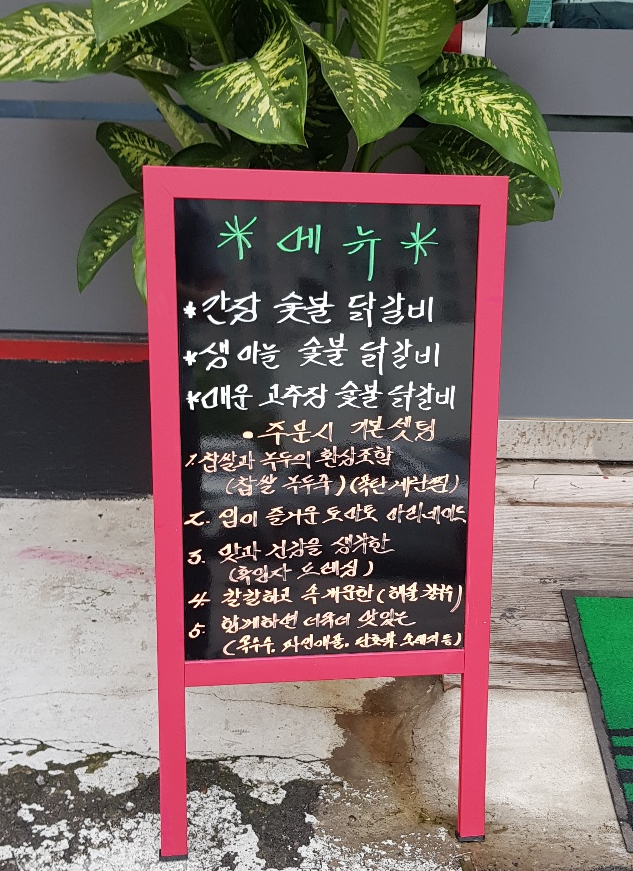 * 메 뉴 *
*간장 숯불 닭갈비
*생마늘 숯불 닭갈비
*매운 고추장 숯불 닭갈비
• 주문시 기본셋팅
1. 찹쌀과 녹두의 환상조합
(찹쌀 녹두죽) (폭탄계란찜)
2. 입이 즐거운 토마토 마리네이드
3. 맛과 건강을 생각한
(흑임자 드레싱)
4. 칼칼하고 속 개운한 (해물 짬뽕)
5. 함께하면 더욱더 맛있는
(옥수수, 파인애플, 단호박, 소세지 등)